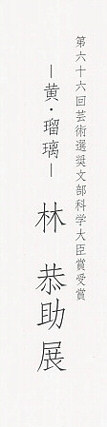 第六十六回芸術選奨文部科学大臣賞受賞
―黄・瑠璃―
林 恭助展